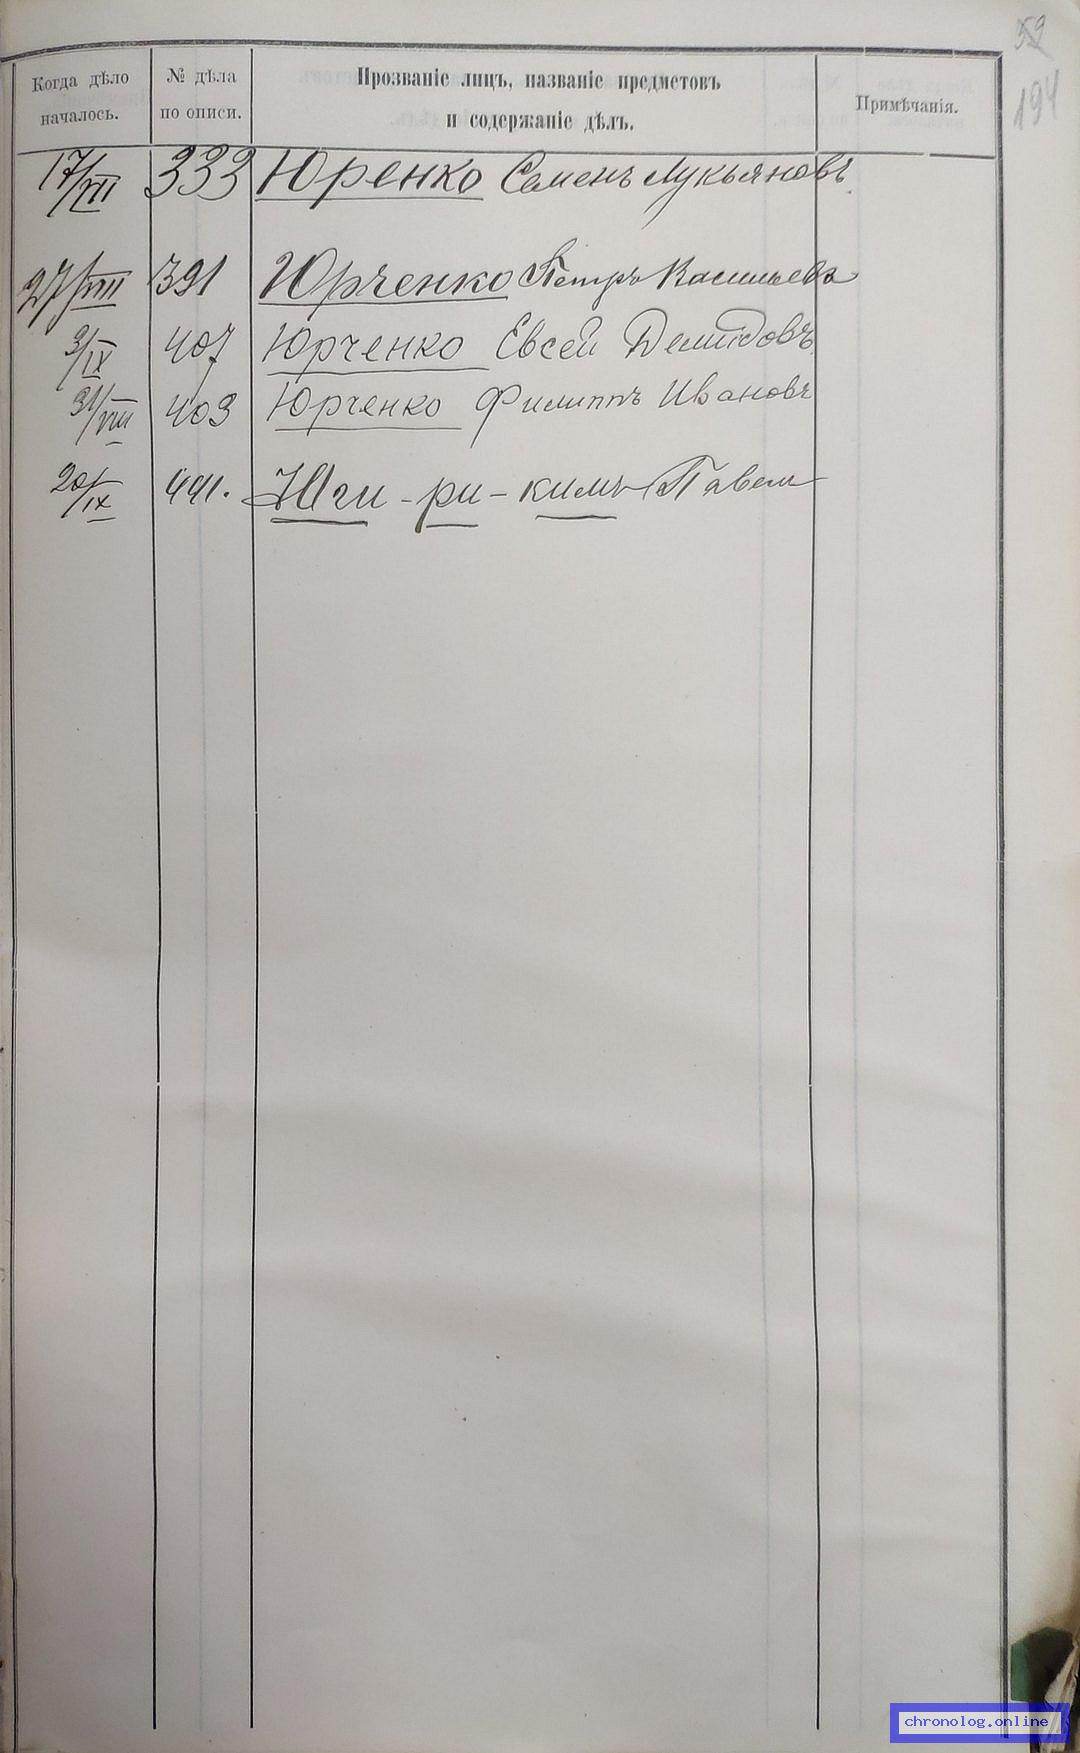 194
Когда дѣло началось.
№ дѣла по описи.
Прозваніе лицъ, названіе предметовъ
и содержаніе дѣлъ.
Примѣчанія.
17/VII 333 Юренко Семенъ Лукьяновъ
27/VIII 391 Юрченко Петръ Васильевъ
3/IX 407 Юрченко Евсей Демидовъ
31/VIII 403 Юрченко Филиппъ Ивановъ
20/IX 441. Юги-ри-кимъ Павелъ
chronolog.online